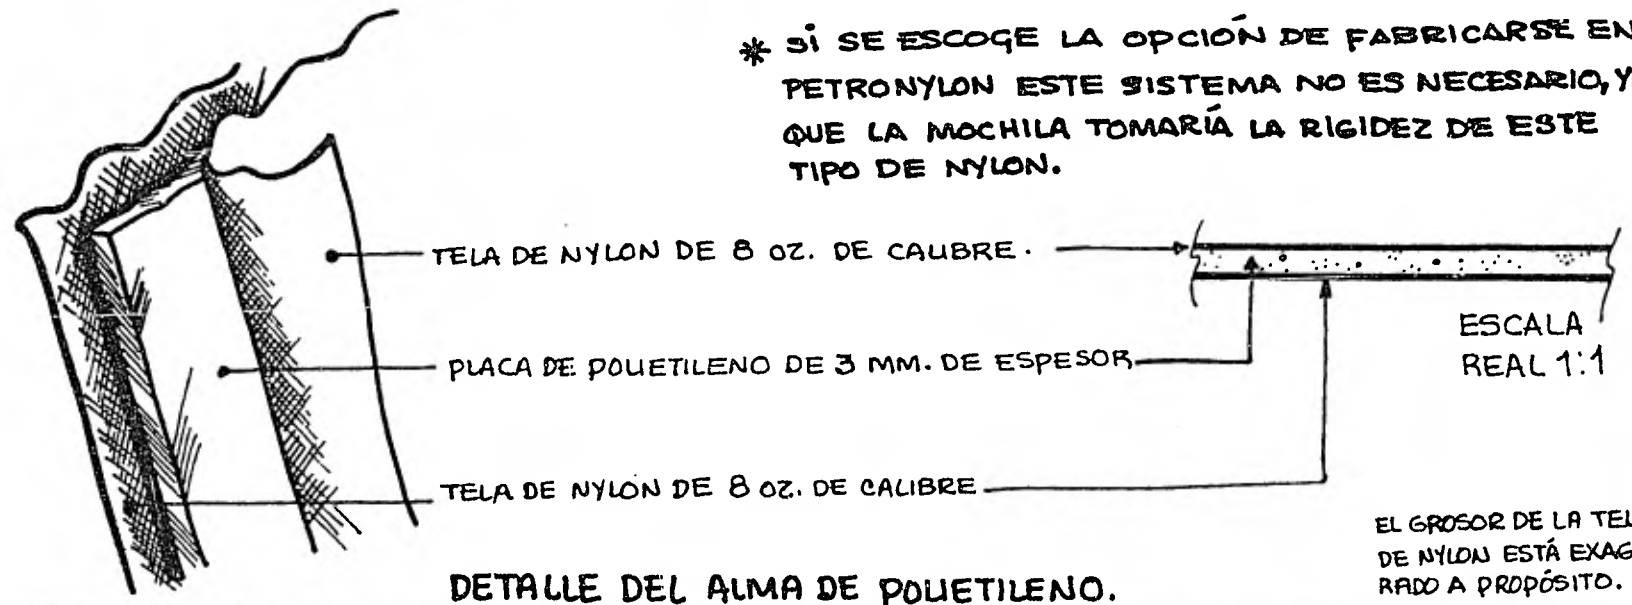 * SI SE ESCOGE LA OPCIÓN DE FABRICARSE EN
PETRONYLON ESTE SISTEMA NO ES NECESARIO, Y
QUE LA MOCHILA TOMARÍA LA RIGIDEZ DE ESTE
TIPO DE NYLON.
TELA DE NYLON DE 8 OZ. DE CALIBRE.
PLACA DE POLIETILENO DE 3 MM. DE ESPESOR
ESCALA
REAL 1:1
TELA DE NYLON DE 8 OZ. DE CALIBRE
EL GROSOR DE LA TEL
DE NYLON ESTÁ EXAG
RADO A PROPÓSITO.
DETALLE DEL ALMA DE POLIETILENO.